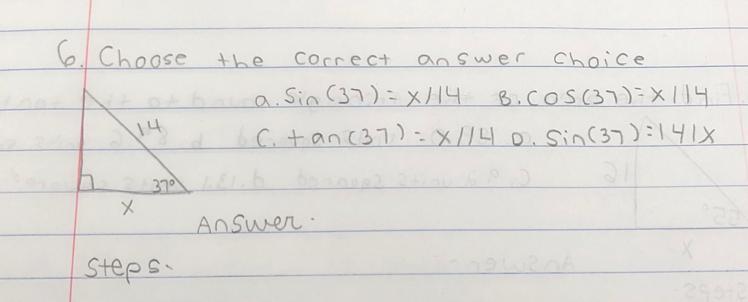 6. Choose the correct answer choice
a. Sin(37) = x/14 B. cos(37) = x/14
14
C. tan(37) = x/14 D. sin(37) = 14/x
37°
x
Answer.
Steps.